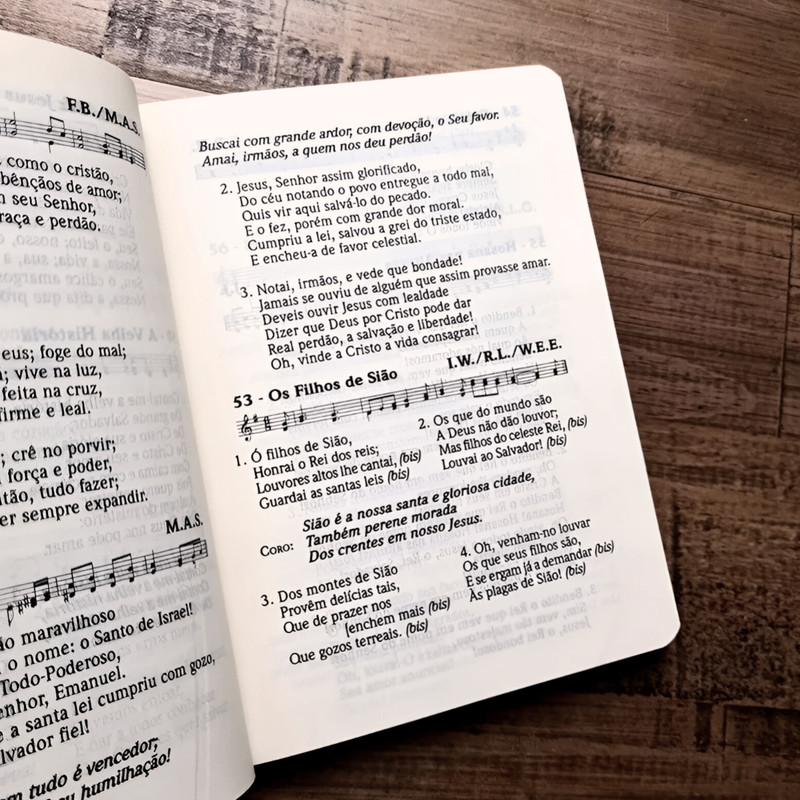 F.B./M.A.S.
como o cristão,
bênçãos de amor;
seu Senhor,
raça e perdão.
eus; foge do mal;
; vive na luz,
feita na cruz,
firme e leal.
; crê no porvir;
força e poder,
tão, tudo fazer;
er sempre expandir.
M.A.S.
ão maravilhoso
o nome: o Santo de Israel!
Todo-Poderoso,
enhor, Emanuel.
e a santa lei cumpriu com gozo,
lvador fiel!
m tudo é vencedor;
u humilhação!
Buscai com grande ardor, com devoção, o Seu favor.
Amai, irmãos, a quem nos deu perdão!
2. Jesus, Senhor assim glorificado,
Do céu notando o povo entregue a todo mal,
Quis vir aqui salvá-lo do pecado.
E o fez, porém com grande dor moral.
Cumpriu a lei, salvou a grei do triste estado,
E encheu-a de favor celestial.
3. Notai, irmãos, e vede que bondade!
Jamais se ouviu de alguém que assim provasse amar.
Deveis ouvir Jesus com lealdade
Dizer que Deus por Cristo pode dar
Real perdão, a salvação e liberdade!
Oh, vinde a Cristo a vida consagrar!
I.W./R.L./W.E.E.
53 - Os Filhos de Sião
1. Ó filhos de Sião,
Honrai o Rei dos reis;
Louvores altos lhe cantai, (bis)
Guardai as santas leis (bis)
2. Os que do mundo são
A Deus não dão louvor;
Mas filhos do celeste Rei, (bis)
Louvai ao Salvador! (bis)
Coro:
Sião é a nossa santa e gloriosa cidade,
Também perene morada
Dos crentes em nosso Jesus.
3. Dos montes de Sião
Provêm delícias tais,
Que de prazer nos
[enchem mais (bis)
Que gozos terreais. (bis)
4. Oh, venham-no louvar
Os que seus filhos são,
E se ergam já a demandar (bis)
As plagas de Sião! (bis)